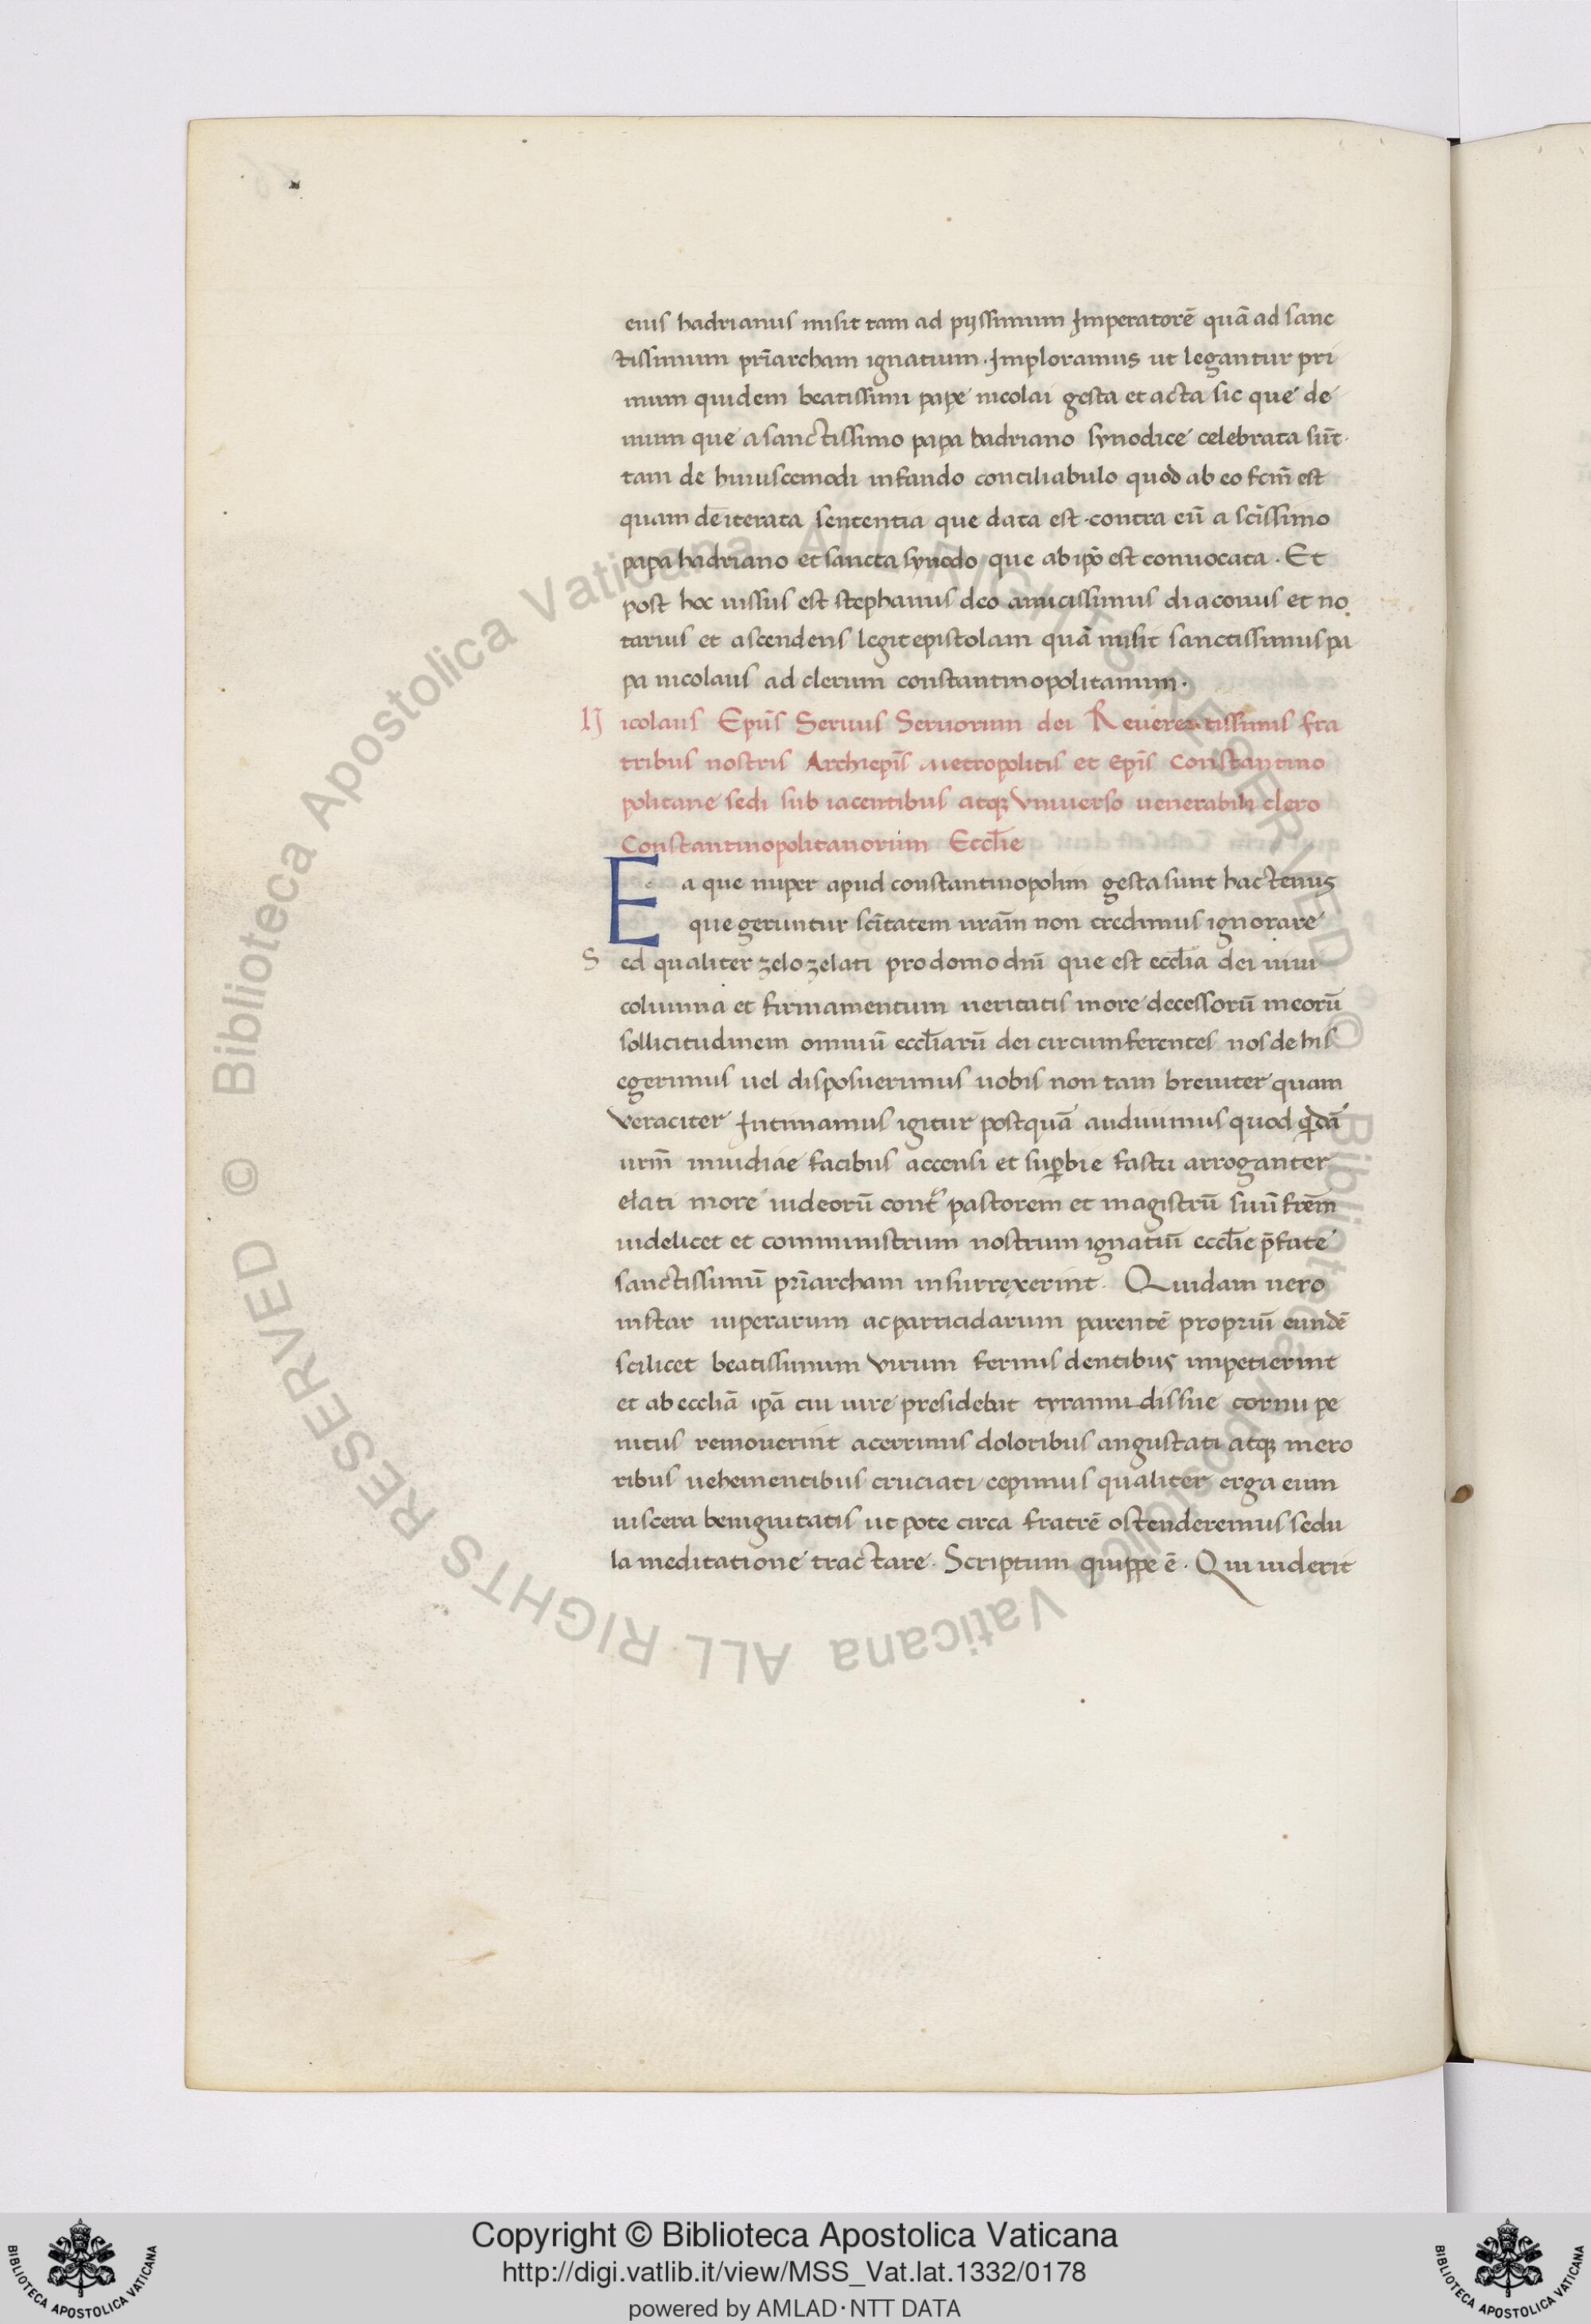 eius hadrianus misit tam ad pyssimum Imperatorē quā ad sanc
tissimum pr̄iarcham ignatium. Imploramus ut legantur pri
mum quidem beatissimi pape nicolai gesta et acta sic que de
mum que a sanctissimo papa hadriano synodice celebrata sūt.
tam de huiuscemodi infando conciliabulo quod ab eo fcm̄ est
quam de iterata sententia que data est. contra eū a scīssimo
papa hadriano et sancta synodo que ab ip̄o est conuocata. Et
post hoc iussus est stephanus deo amicissimus diaconus et no
tarius et ascendens legit epistolam quā misit sanctissimus pa
pa nicolaus ad clerum constantinopolitanum.
Nicolaus Ep̄us Seruus Seruorum dei Reuerentissimis fra
tribus nostris Archiep̄is Metropolitis et Ep̄is Constantino
politane sedi sub iacentibus atq; Vniuerso uenerabili clero
Constantinopolitanorum Eccl̄ie
Ea que nuper apud constantinopolim gesta sunt hactenus
que geruntur scītatem urām non credimus ignorare
Sed qualiter zelo zelati pro domo dn̄i que est eccl̄ia dei uiui
columna et firmamentum ueritatis more decessorū meorū
sollicitudinem omniū eccl̄iarū dei circumferentes nos de his
egerimus uel disposuerimus uobis non tam breuiter quam
veraciter Intimamus igitur postquā audiuimus quod qdā
urm̄ inuidiae facibus accensi et supbie fastu arroganter
elati more iudeorū cont̄ pastorem et magistrū suū frēm
uidelicet et comministrum nostrum ignatiū eccl̄ie p̄fate
sanctissimū pr̄iarcham insurrexerint. Quidam uero
instar uiperarum ac parricidarum parentē propriū eundē
scilicet beatissimum virum ferinis dentibus impetierint
et ab eccliā ip̄ā cui iure presidebat tyrannidis sue cornu pe
nitus remouerint acerrimis doloribus angustati atq; mero
ribus uehementibus cruciati cepimus qualiter erga eum
uiscera benignitatis ut pote circa fratrē ostenderemus sedu
la meditatione tractare. Scriptum quippe ē. Qui uiderit
Copyright © Biblioteca Apostolica Vaticana
http://digi.vatlib.it/view/MSS_Vat.lat.1332/0178
powered by AMLAD·NTT DATA
BIBLIOTECA APOSTOLICA VATICANA
BIBLIOTECA APOSTOLICA VATICANA
© Biblioteca Apostolica Vaticana ALL RIGHTS RESERVED © Biblioteca Apostolica Vaticana ALL RIGHTS RESERVED